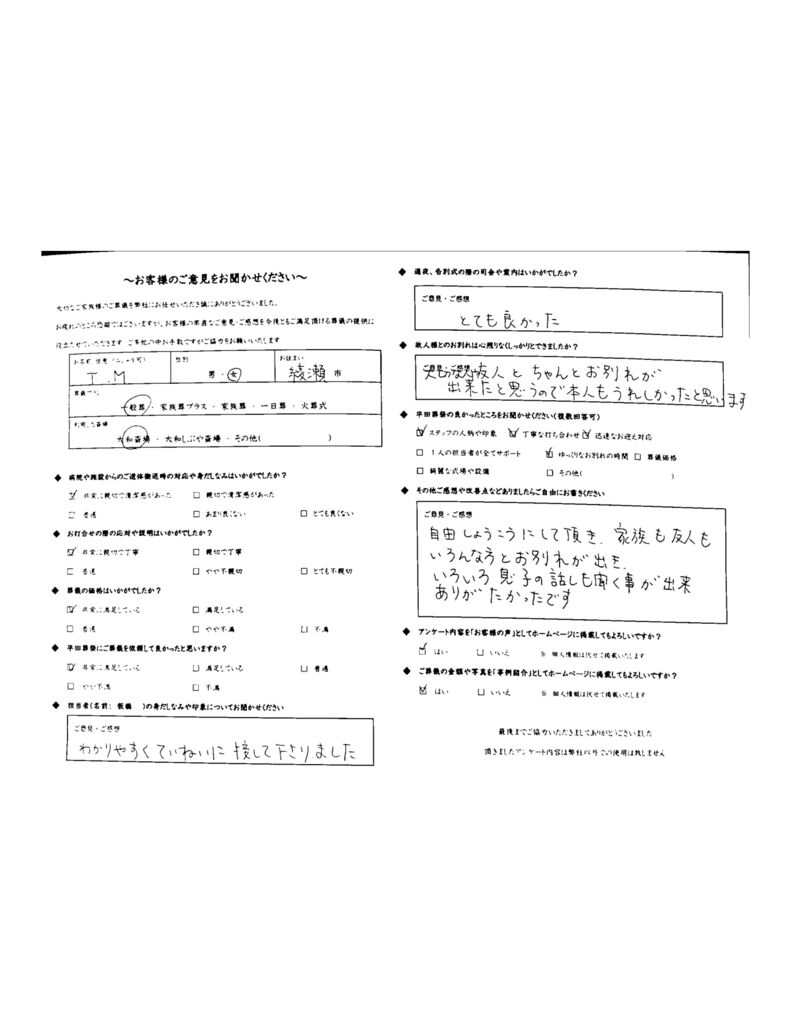 ～お客様のご意見をお聞かせください～
大切なご家族様のご葬儀を弊社にお任せいただき誠にありがとうございました。
お疲れのところ恐縮ではございますが、お客様の率直なご意見・ご感想を今後ともご満足頂ける葬儀の提供に
役立たせていただきます ご多忙の中お手数ですがご協力をお願いいたします
お名前 性別 お住まい
T.M 男・女 綾瀬 市
一般葬・家族葬プラス・家族葬・一日葬・火葬式
利用した斎場
大和斎場・大和しぶや斎場・その他( )
◆ 病院や施設からのご遺体搬送時の対応や身だしなみはいかがでしたか？
☑ 非常に親切で清潔感があった □ 親切で清潔感があった
□ 普通 □ あまり良くない □ とても良くない
◆ お打合せの際の応対や説明はいかがでしたか？
☑ 非常に親切で丁寧 □ 親切で丁寧
□ 普通 □ やや不親切 □ とても不親切
◆ 葬儀の価格はいかがでしたか？
☑ 非常に満足している □ 満足している
□ 普通 □ やや不満 □ 不満
◆ 平田葬祭にご葬儀を依頼して良かったと思いますか？
☑ 非常に満足している □ 満足している □ 普通
□ やや不満 □ 不満
◆ 担当者(名前: 板橋 )の身だしなみや印象についてお聞かせください
ご意見・ご感想
わかりやすくていねいに接して下さりました
◆ 通夜、告別式の際の司会や案内はいかがでしたか？
ご意見・ご感想
とても良かった
◆ 故人様とのお別れは心残りなくしっかりとできましたか？
ご意見・ご感想
友人とちゃんとお別れが
出来たと思うので本人もうれしかったと思います
◆ 平田葬祭の良かったところをお聞かせください(複数回答可)
☑ スタッフの人柄や印象 ☑ 丁寧な打ち合わせ ☑ 迅速なお迎え対応
□ 1人の担当者が全てサポート ☑ ゆっくりなお別れの時間 □ 葬儀価格
□ 綺麗な式場や設備 □ その他( )
◆ その他ご感想や改善点などありましたらご自由にお書きください
ご意見・ご感想
自由しょうこうにして頂き、家族も友人も
いろんな方とお別れが出き、
いろいろ息子の話しも聞く事が出来
ありがたかったです
◆ アンケート内容を「お客様の声」としてホームページに掲載してもよろしいですか？
☑ はい □ いいえ ※ 個人情報は伏せて掲載いたします
◆ ご葬儀の金額や写真を「事例紹介」としてホームページに掲載してもよろしいですか？
☑ はい □ いいえ ※ 個人情報は伏せて掲載いたします
最後までご協力いただきましてありがとうございました
頂きましたアンケート内容は弊社以外での使用は致しません